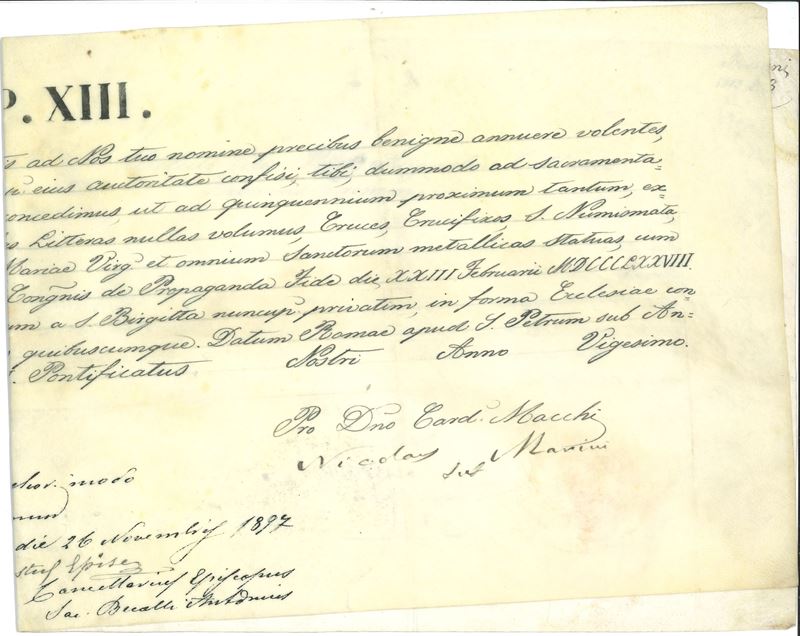 P. XIII.
ad Nos tuo nomine precibus benigne annuere volentes,
eius autoritate confisi, tibi, dummodo ad sacramenta=
concedimus, ut ad quinquennium proximum tantum, ex=
Litteras nullas volumus, Cruces, Crucifixos, S. Numismata,
Mariae Virg. et omnium Sanctorum metallicas statuas, cum
Congnis de Propaganda Fide die XXIII Februarii MDCCCLXXVIII.
um a S. Birgitta nuncup. privatim, in forma Ecclesiae con
quibuscumque. Datum Romae apud S. Petrum sub An=
Pontificatus Nostri Anno Vigesimo.
Pro Dno Card. Macchi
Nicolaus Marini
modo
die 26 Novembris 1897
Cancellarius Episcopus
Sac. Antonius